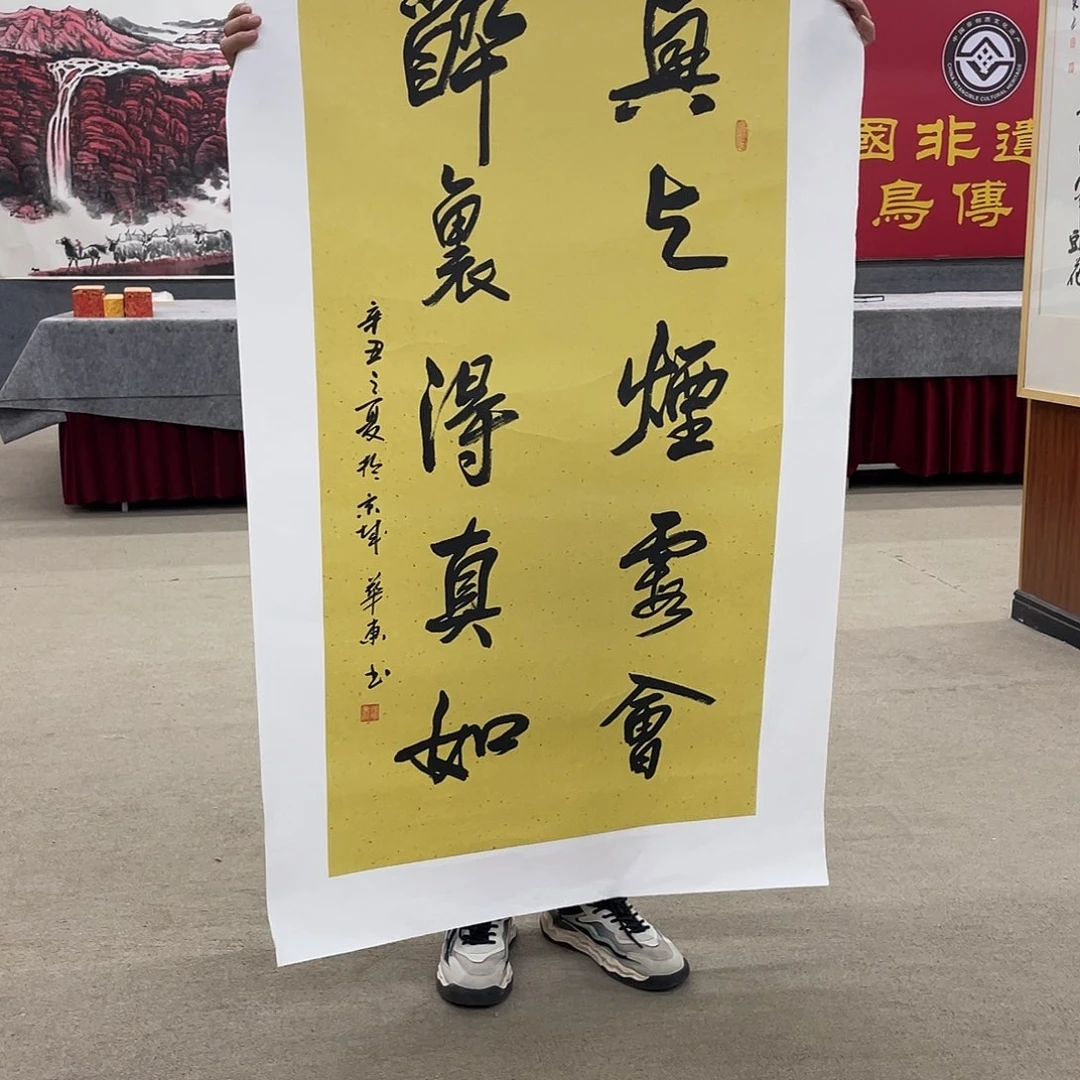 興与煙霞會
醉裏得真如
辛丑之夏於京城 華東书
國非遺
鳥傳
CHINA INTANGIBLE CULTURAL HERITAGE